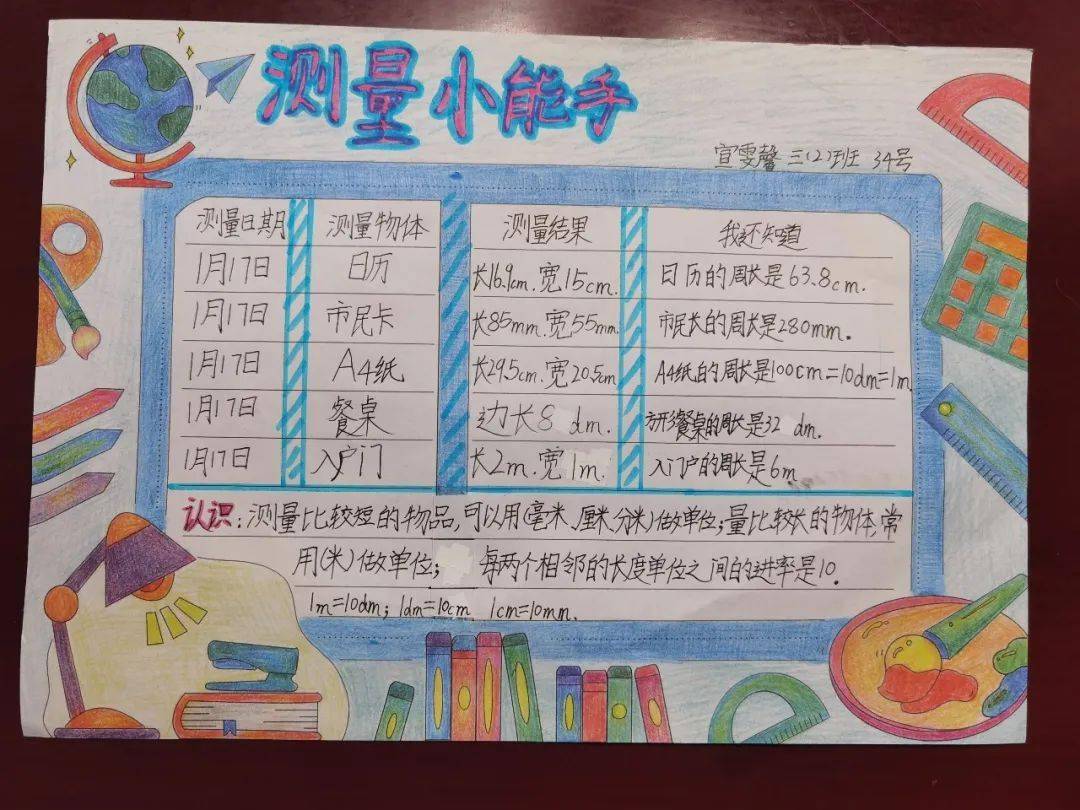 测量小能手
宣雯馨 三(2)班 34号
测量日期 测量物体 测量结果 我还知道
1月17日 日历 长16.9cm.宽15cm. 日历的周长是63.8cm.
1月17日 市民卡 长85mm.宽55mm. 市民长的周长是280mm。
1月17日 A4纸 长29.5cm.宽20.5cm A4纸的周长是100cm=10dm=1m
1月17日 餐桌 边长8 dm. 方形餐桌的周长是32 dm.
1月17日 入户门 长2m.宽1m. 入门户的周长是6m
认识:测量比较短的物品,可以用(毫米、厘米、分米)做单位;量比较长的物体,常
用(米)做单位; 每两个相邻的长度单位之间的进率是10。
1m=10dm; 1dm=10cm 1cm=10mm.